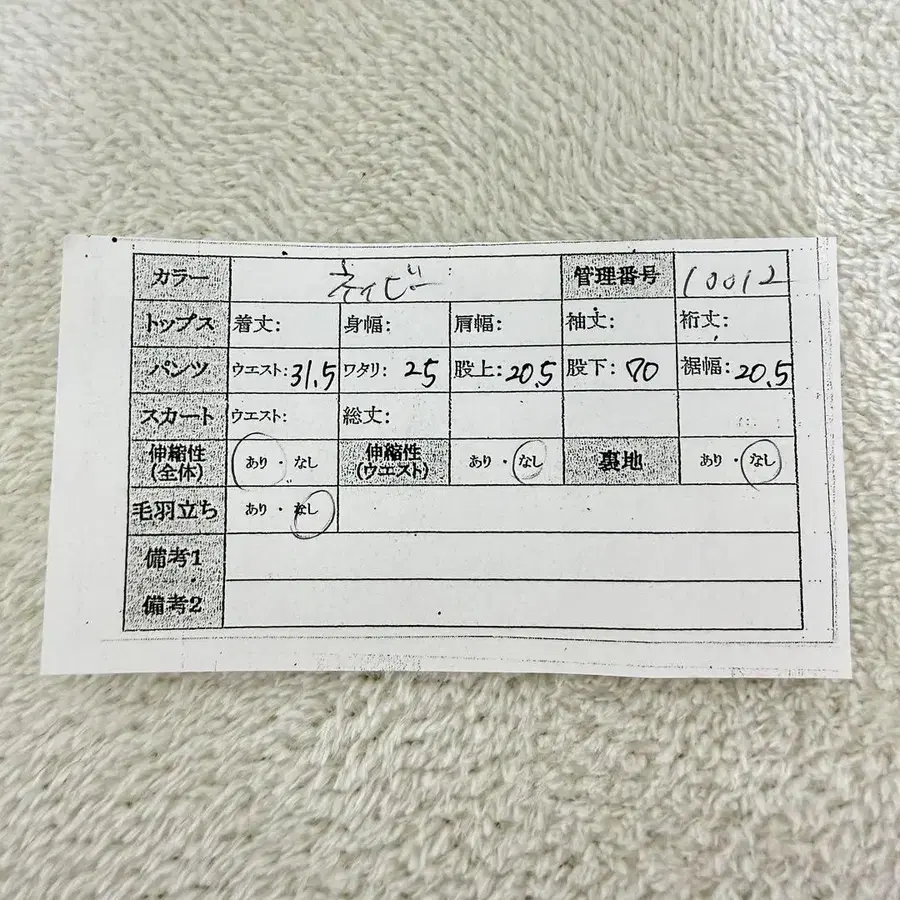 カラー ネイビー 管理番号 10012
トップス 着丈: 身幅: 肩幅: 袖丈: 裄丈:
パンツ ウエスト: 31.5 ワタリ: 25 股上: 20.5 股下: 70 裾幅: 20.5
スカート ウエスト: 総丈:
伸縮性(全体) あり・なし 伸縮性(ウエスト) あり・なし 裏地 あり・なし
毛羽立ち あり・なし
備考1
備考2